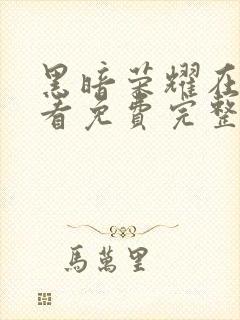 黑暗荣耀在
看免费完整
馬萬里